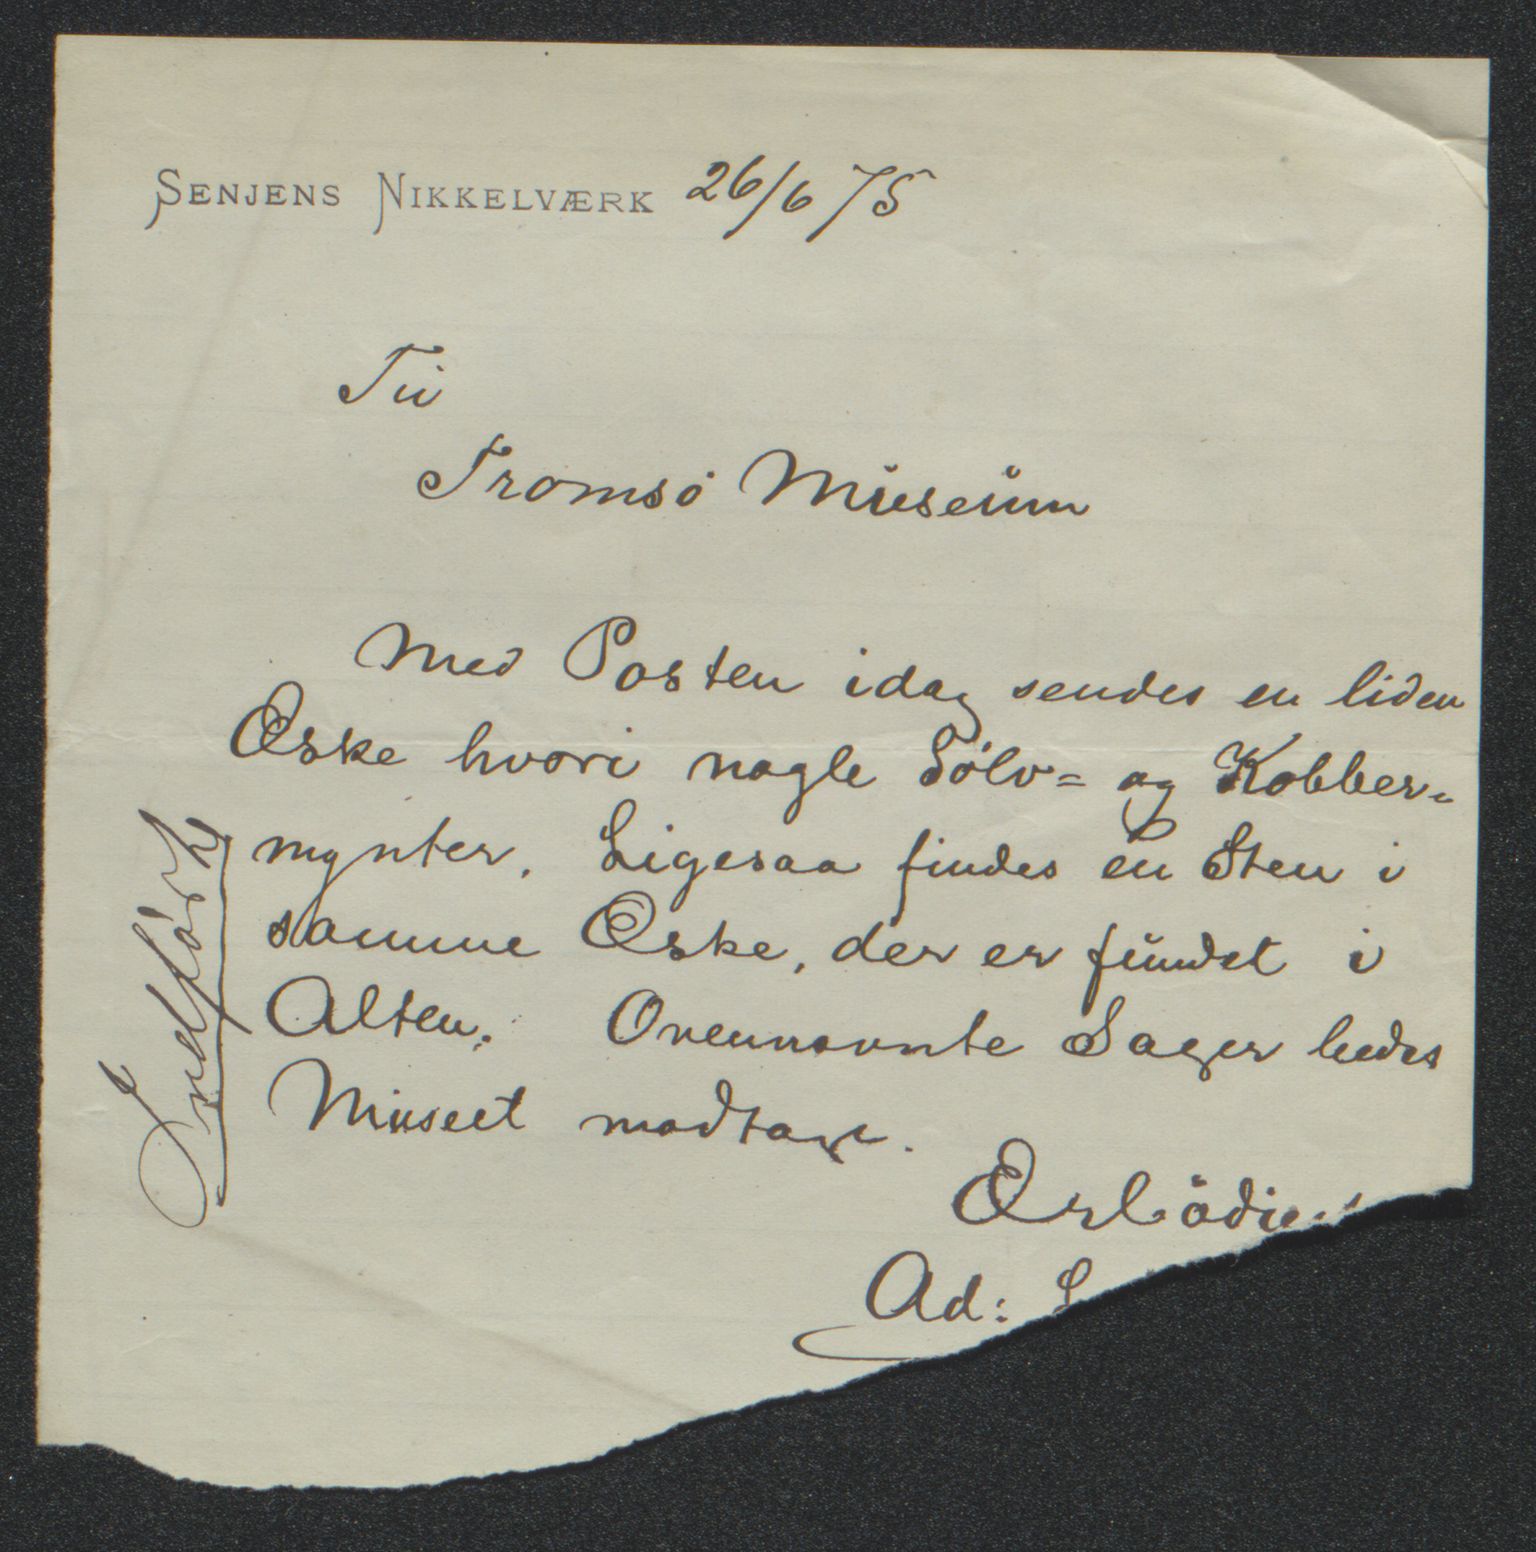 SENJENS NIKKELVÆRK 26/6 75
Til
Tromsö Museum
Med Posten idag sendes en liden
Æske hvori nogle Sölv= og Kobber=
mynter. Ligesaa findes en Sten i
samme Æske, der er fundet i
Alten. Ovennævnte Sager bedes
Museet modtage.
Ærbödigst
Ad:
Indført